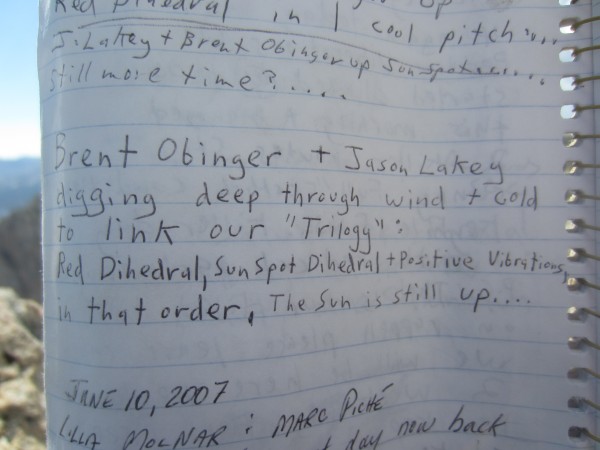 Red Dihedral in 1 up
cool pitch....
J. Lakey + Brent Obinger up Sunspot......
still more time?....
Brent Obinger + Jason Lakey
digging deep through wind + cold
to link our "Trilogy":
Red Dihedral, Sun Spot Dihedral + Positive Vibrations,
in that order. The Sun is still up....
JUNE 10, 2007
LILLA MOLNAR & MARC PICHÉ
day now back